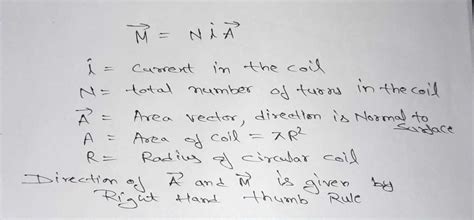 M⃗ = N i A⃗
i = Current in the coil
N = total number of turns in the coil
A⃗ = Area vector, direction is Normal to Surface
A = Area of coil = πR²
R = Radius of circular coil
Direction of A⃗ and M⃗ is given by
Right Hand thumb Rule